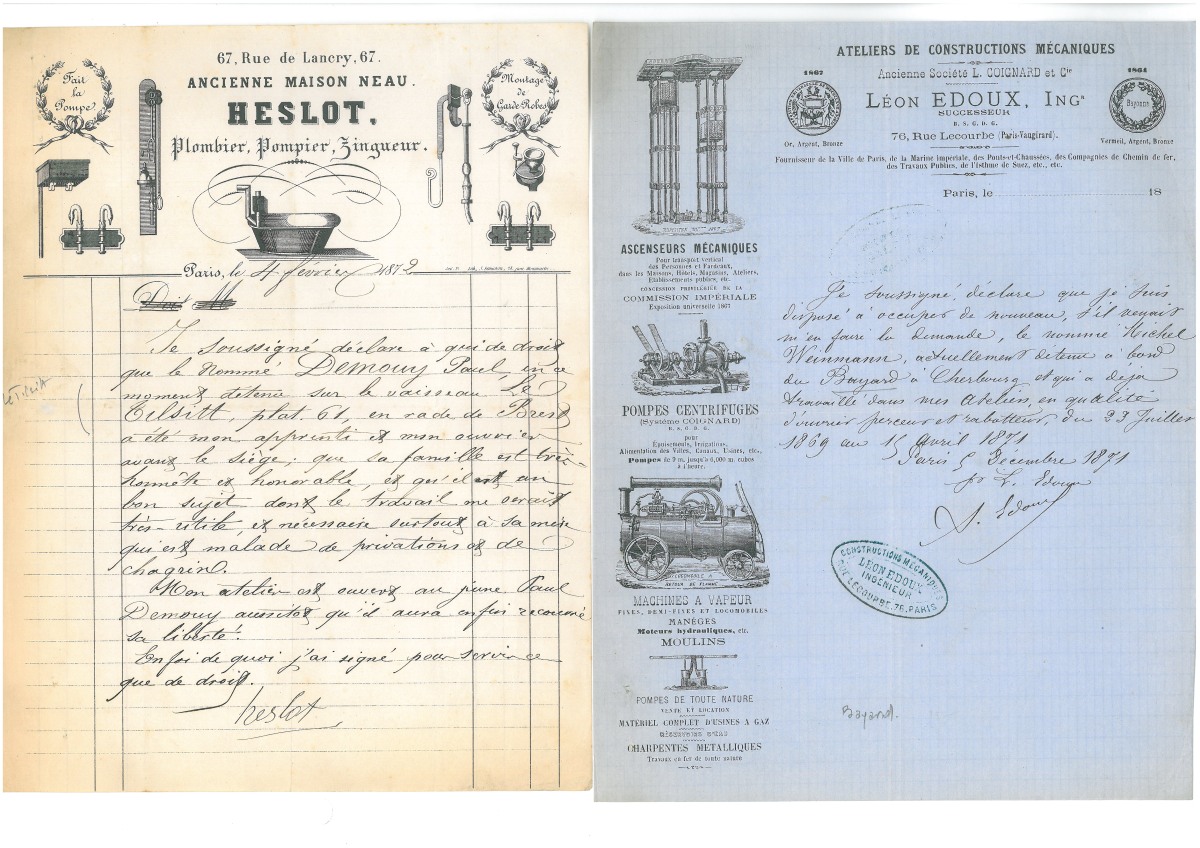 67, Rue de Lancry, 67.
ANCIENNE MAISON NEAU.
HESLOT,
Plombier, Pompier, Zingueur.
Fait
la
Pompe
Montage
de
Garde-Robes
Paris, le 4 février 1872
Doit M
Je soussigné déclare à qui de droit
que le nommé Demouy Paul, en ce
moment détenu sur le vaisseau Le
Tilsitt, plat. 61, en rade de Brest
a été mon apprenti et mon ouvrier
avant le siège; que sa famille est très-
honnête et honorable, et qu'il est un
bon sujet dont le travail me serait
très-utile, et nécessaire surtout à sa mère
qui est malade de privations et de
chagrin.
Mon atelier est ouvert au jeune Paul
Demouy aussitôt qu'il aura enfin recouvré
sa liberté.
En foi de quoi j'ai signé pour servir ce
que de droit.
Heslot
ATELIERS DE CONSTRUCTIONS MÉCANIQUES
Ancienne Société L. COIGNARD et Cie
LÉON EDOUX, INGr
SUCCESSEUR
B. S. G. D. G.
76, Rue Lecourbe (Paris-Vaugirard).
1867
Or, Argent, Bronze
1864
Bayonne
Vermeil, Argent, Bronze
Fournisseur de la Ville de Paris, de la Marine impériale, des Ponts-et-Chaussées, des Compagnies de Chemin de fer,
des Travaux Publics, de l'Isthme de Suez, etc., etc.
Paris, le 18
ASCENSEURS MÉCANIQUES
Pour transport vertical
des Personnes et Fardeaux,
dans les Maisons, Hôtels, Magasins, Ateliers,
Etablissements publics, etc.
CONCESSION PRIVILÉGIÉE DE LA
COMMISSION IMPÉRIALE
Exposition universelle 1867
POMPES CENTRIFUGES
(Système COIGNARD)
B. S. G. D. G.
pour
Épuisements, Irrigations,
Alimentation des Villes, Canaux, Usines, etc.,
Pompes de 9 m. jusqu'à 6,000 m. cubes
à l'heure.
LOCOMOBILE A
RETOUR DE FLAMME
MACHINES A VAPEUR
FIXES, DEMI-FIXES ET LOCOMOBILES
MANÈGES
Moteurs hydrauliques, etc.
MOULINS
POMPES DE TOUTE NATURE
VENTE ET LOCATION
MATERIEL COMPLET D'USINES A GAZ
RÉSERVOIRS D'EAU
CHARPENTES METALLIQUES
Travaux en fer de toute nature
Je soussigné, déclare que je suis
disposé à occuper de nouveau, s'il venait
m'en faire la demande, le nommé Michel
Weinmann, actuellement détenu à bord
du Bayard à Cherbourg et qui a déjà
travaillé dans mes Ateliers, en qualité
d'ouvrier perceur et rabatteur, du 23 Juillet
1869 au 15 avril 1871
Paris 5 Décembre 1871
po L. Edoux
A. Edoux
CONSTRUCTIONS MÉCANIQUES
LÉON EDOUX
INGÉNIEUR
RUE LECOURBE, 76, PARIS
Bayard.